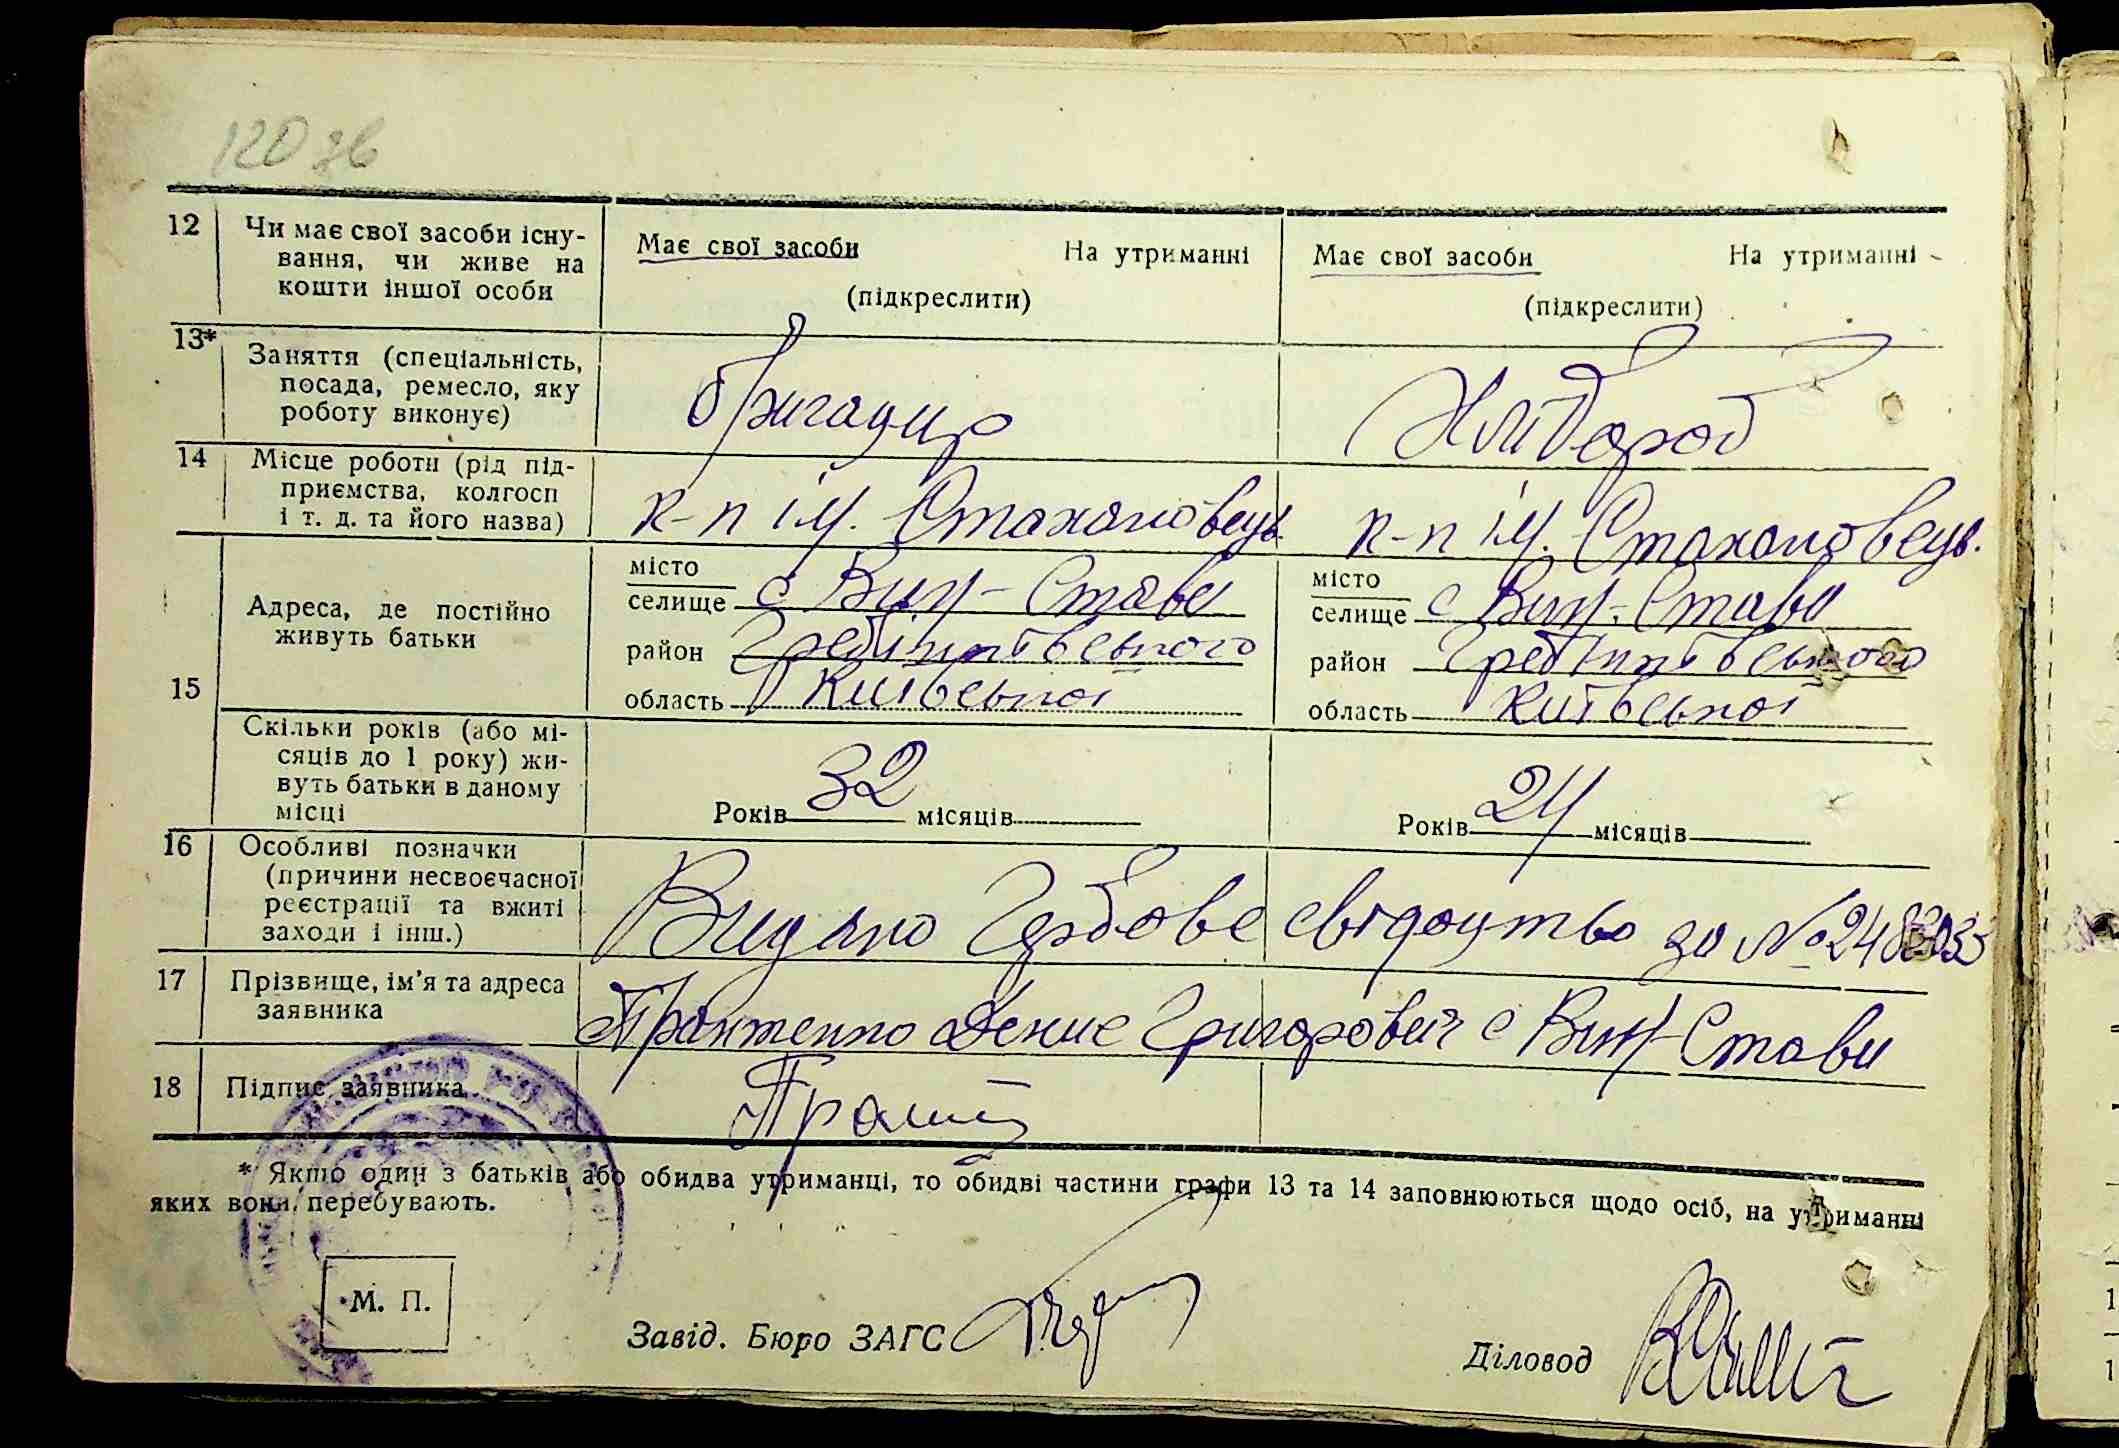 120 зв
12 Чи має свої засоби існу-
вання, чи живе на
кошти іншої особи
Має свої засоби На утриманні
(підкреслити)
Має свої засоби На утриманні
(підкреслити)
13* Заняття (спеціальність,
посада, ремесло, яку
роботу виконує)
бригадир
Хлібороб
14 Місце роботи (рід під-
приємства, колгосп
і т. д. та його назва)
к-п ім. Стахановець
к-п ім. Стахановець.
15 Адреса, де постійно
живуть батьки
місто
селище с Вин-Стави
район Гребінківського
область Київської
місто
селище с Вин-Стави
район Гребінківського
область Київської
Скільки років (або мі-
сяців до 1 року) жи-
вуть батьки в даному
місці
Років 32 місяців
Років 24 місяців
16 Особливі позначки
(причини несвоєчасної
реєстрації та вжиті
заходи і інш.)
Видано Гербове свідоцтво за № 2483033
17 Прізвище, ім'я та адреса
заявника
Денис Григорович с Вин-Стави
18 Підпис заявника
* Якщо один з батьків або обидва утриманці, то обидві частини графи 13 та 14 заповнюються щодо осіб, на утриманні
яких вони перебувають.
М. П.
Завід. Бюро ЗАГС
Діловод